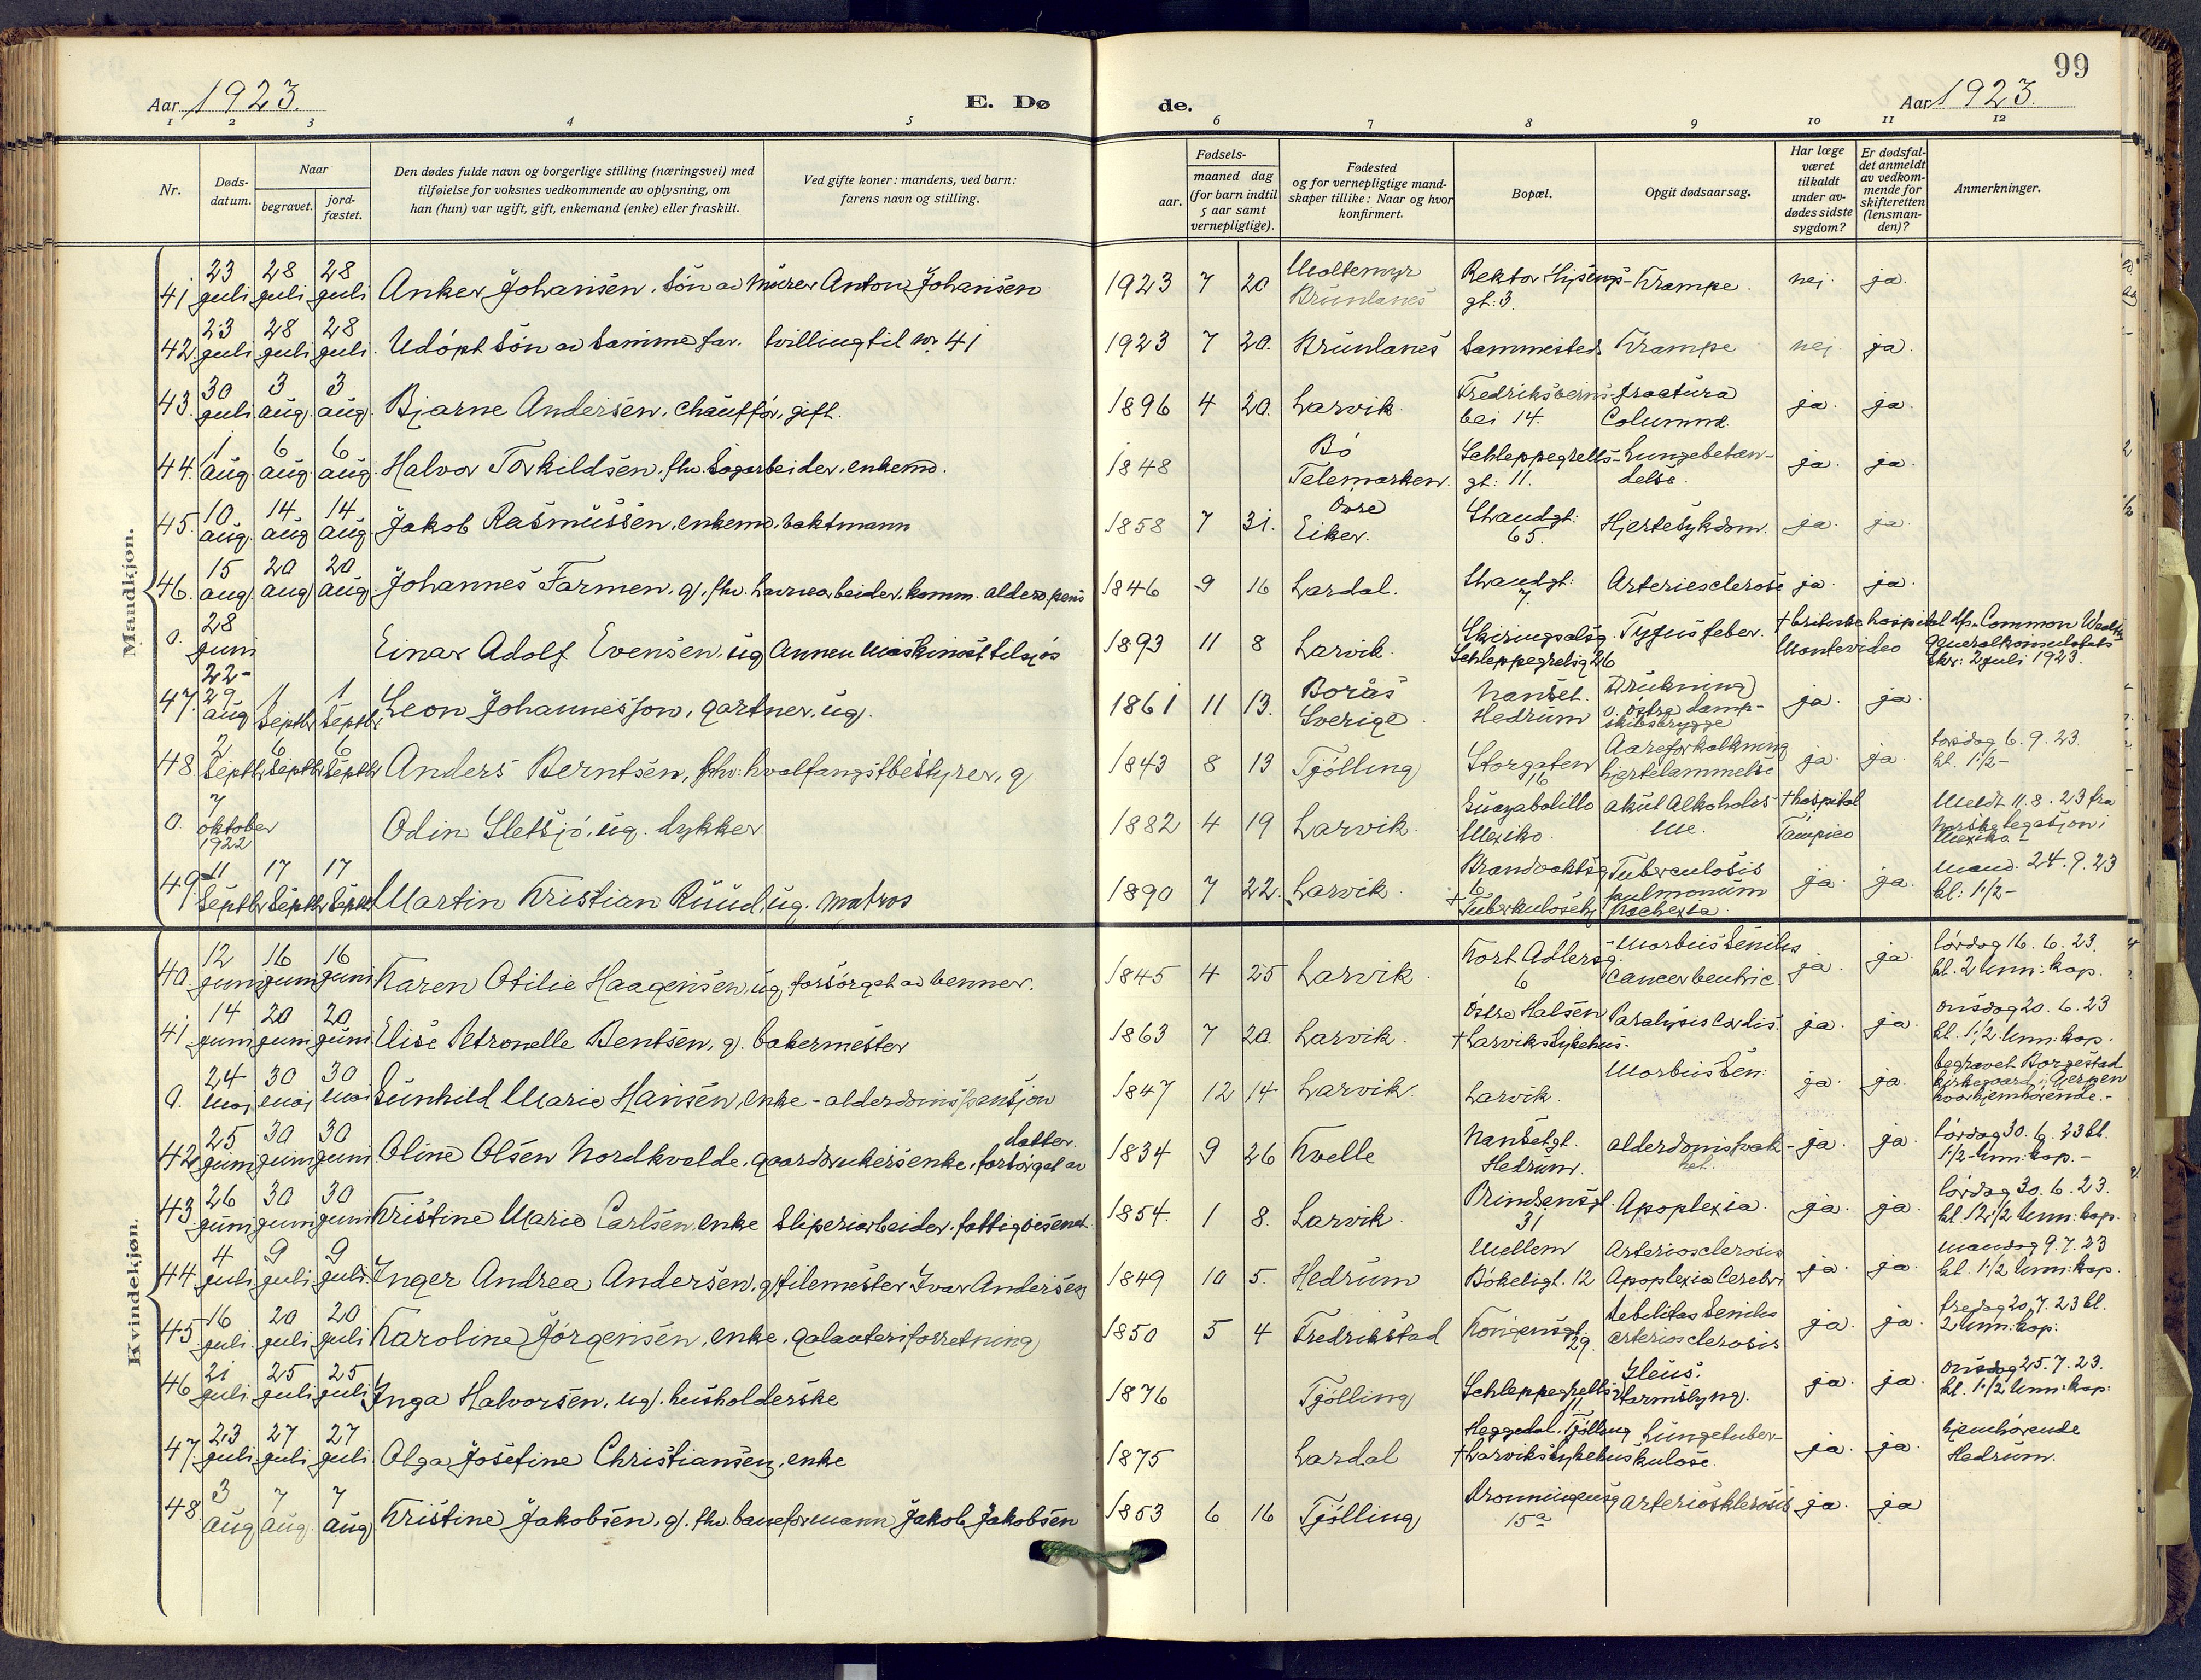 99
Aar 1923. E. Dø de. Aar 1923.
1 2 3 4 5 6 7 8 9 10 11 12
Nr. Døds-datum. Naar begravet. jord-fæstet. Den dødes fulde navn og borgerlige stilling (næringsvei) med tilføielse for voksnes vedkommende av oplysning, om han (hun) var ugift, gift, enkemand (enke) eller fraskilt. Ved gifte koner: mandens, ved barn: farens navn og stilling. Fødsels- aar. maaned dag (for barn indtil 5 aar samt vernepligtige). Fødested og for vernepligtige mandskaper tillike: Naar og hvor konfirmert. Bopæl. Opgit dødsaarsag. Har læge været tilkaldt under avdødes sidste sygdom? Er dødsfaldet anmeldt av vedkommende for skifteretten (lensmanden)? Anmerkninger.
Mandkjøn.
41 23 juli 28 juli 28 juli Anker Johansen. Søn av murer Anton Johansen 1923 7 20 Moltemyr Brunlanes Rektor Hysings- gt: 3. Krampe. nej. ja.
42. 23 juli 28 juli 28 juli. Udøpt søn av samme far. tvilling til nr. 41 1923 7 20. Brunlanes Sammesteds Krampe nej. ja.
43. 30 juli 3 aug. 3 aug. Bjarne Andersen, chauffør, gift. 1896 4 20. Larvik. Fredriksverns- vei 14. fractura Columna. ja. ja.
44. 1 aug. 6 aug. 6 aug. Halvor Torkildsen, fhv. Sagarbeider, enkem. 1848 Bø Telemarken. Schleppegrells- gt: 11. Lungebetæn- delse. ja. ja.
45. 10 aug. 14 aug 14 aug. Jakob Rasmussen, enkem, vaktmann 1858 7 31. Øvre Eiker. Strandgt: 65. Hjertesykdom. ja. ja.
46. 15 aug 20 aug 20 aug. Johannes Farmen, g, fhv. havnearbeider, komm. alders.pens 1846 9 16 Lardal. Strandgt: 7. Arteriesclerose ja. ja.
0. 28 juni Einar Adolf Evensen, ug Annen maskinist tilsjøs 1893 11 8 Larvik. Skiringsalsg. Schleppegrellsg 26 Tyfusfeber. † britiske hospital Montevideo Common Wealth Generalkonsulatets Skr: 2 juli 1923.
47. 22- 29 aug 1 Septbr 1 Septbr Leon Johannesson, gartner, ug. 1861 11 13. Borås Sverige. Nanset. Hedrum Drukning v. østre damp- skibsbrygge ja. ja.
48. 2 Septbr 6 Septbr 6 Septbr Anders Berntsen, fhv: hvalfangstbestyrer, g 1843 8 13 Tjølling Storgaten 16 Aareforkalkning hjertelammelse ja. ja. torsdag 6. 9. 23. kl. 1 1/2 -
0. 7 oktober 1922 Odin Sletsjø, ug. dykker 1882 4 19 Larvik. Mexiko. akut Alkoholis- me. † hospital Tampico Meldt 11. 8. 23 fra norske legasjon i Mexiko. -
49 11 Septbr 17 Septbr 17 Septbr Martin Kristian Ruud, ug. matros 1890 7 22. Larvik. Brandvaktsg 6 † Tuberkulosehj Tuberculosis pulmonum Kachexia. ja. ja. mand. 24. 9. 23 kl: 1 1/2 -
Kvindekjøn.
40. 12 juni 16 juni 16 juni Karen Otilie Haagensen, ug, forsørget av venner. 1845 4 25 Larvik. Kort Adlersg. 6 Morbus Senilis Cancer ventric. ja. ja. lørdag 16. 6. 23. kl. 2 Unn: kap.
41. 14 juni 20 juni 20 juni Elise Petronelle Bentsen, g. bakermester 1863 7 20. Larvik. Østre Halsen † Larviks Sykehus. Paralysis Cordis. ja. ja. onsdag 20. 6. 23 kl. 1 1/2 Unn: kap.
0. 24 mai 30 mai 30 mai Gunhild Marie Hansen, enke - alderdomspensjon 1847 12 14 Larvik. Larvik. Morbus Sen: ja. ja. begravet Borgestad kirkegaard i Gjerpen hvor hjemhørende. -
42. 25 juni 30 juni 30 juni. Oline Olsen Nordkvelde, gaardbrukersenke, forsørget av datter. 1834 9 26 Kvelle Nansetgt. Hedrum. alderdomssvak- het. ja. ja. lørdag 30. 6. 23 kl. 1 1/2 - Unn: kap. -
43. 26 juni 30 juni 30 juni Kristine Marie Carlsen, enke Sliperiarbeider, fattigvesenet. 1854. 1 8. Larvik. Prindsensgt. 31 Apoplexia. ja. ja. lørdag 30. 6. 23. kl 12 1/2 Unn: kap.
44. 4 juli 9 juli 9 juli. Inger Andrea Andersen, g filemester Ivar Andersen 1849 10 5. Hedrum Mellem Bøkeligt. 12 Arteriosclerosis Apoplexia Cerebri ja. ja. mandag 9. 7. 23 kl. 1 1/2 Unn: kap.
45 16 juli. 20 juli 20 juli Karoline Jørgensen, enke, galanteriforretning 1850 5 4 Fredrikstad Kongensgt 29. Debilitas Senilis arteriosclerosis ja. ja. fredag 20. 7. 23 kl. 2 Unn: kap.
46 21 juli. 25 juli 25 juli Inga Halvorsen, ug. husholderske 1876 Tjølling Schleppegrellsg 11 Ileus. Tarmslyng. ja. ja. onsdag 25. 7. 23. kl. 1 1/2 Unn: kap:
47. 23 juli 27 juli 27 juli. Olga Josefine Christiansen, enke 1875 Lardal Heggedal, Tjølling † Larviks Sykehus Lungetuber- kulose. ja. ja. hjemhørende Hedrum.
48. 3 aug 7 aug. 7 aug. Kristine Jakobsen, g. fhv. baneformann Jakob Jakobsen 1853 6 16 Tjølling Dronningensg 15a arteriosklerosis ja. ja